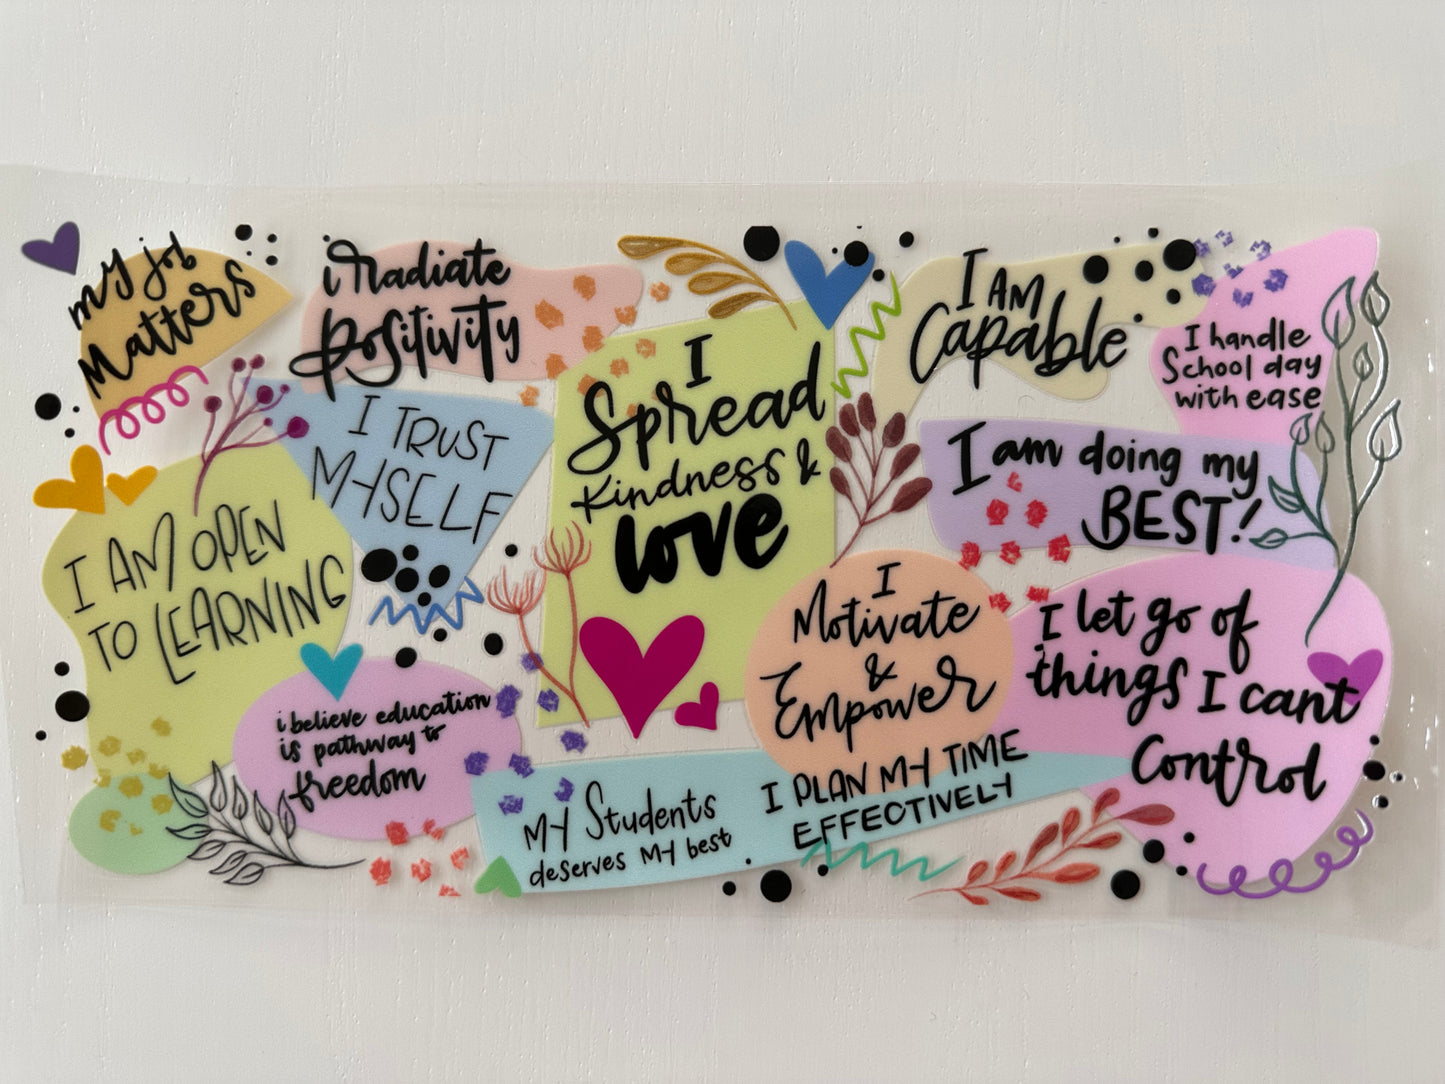 my job
Matters
i radiate
positivity
I TRUST
MYSELF
I AM OPEN
TO LEARNING
i believe education
is pathway to
freedom
I
Spread
Kindness &
love
I AM
Capable
I handle
School day
with ease
I am doing my
BEST!
I
Motivate
&
Empower
I let go of
things I cant
Control
MY Students
deserves MY best
I PLAN MY TIME
EFFECTIVELY